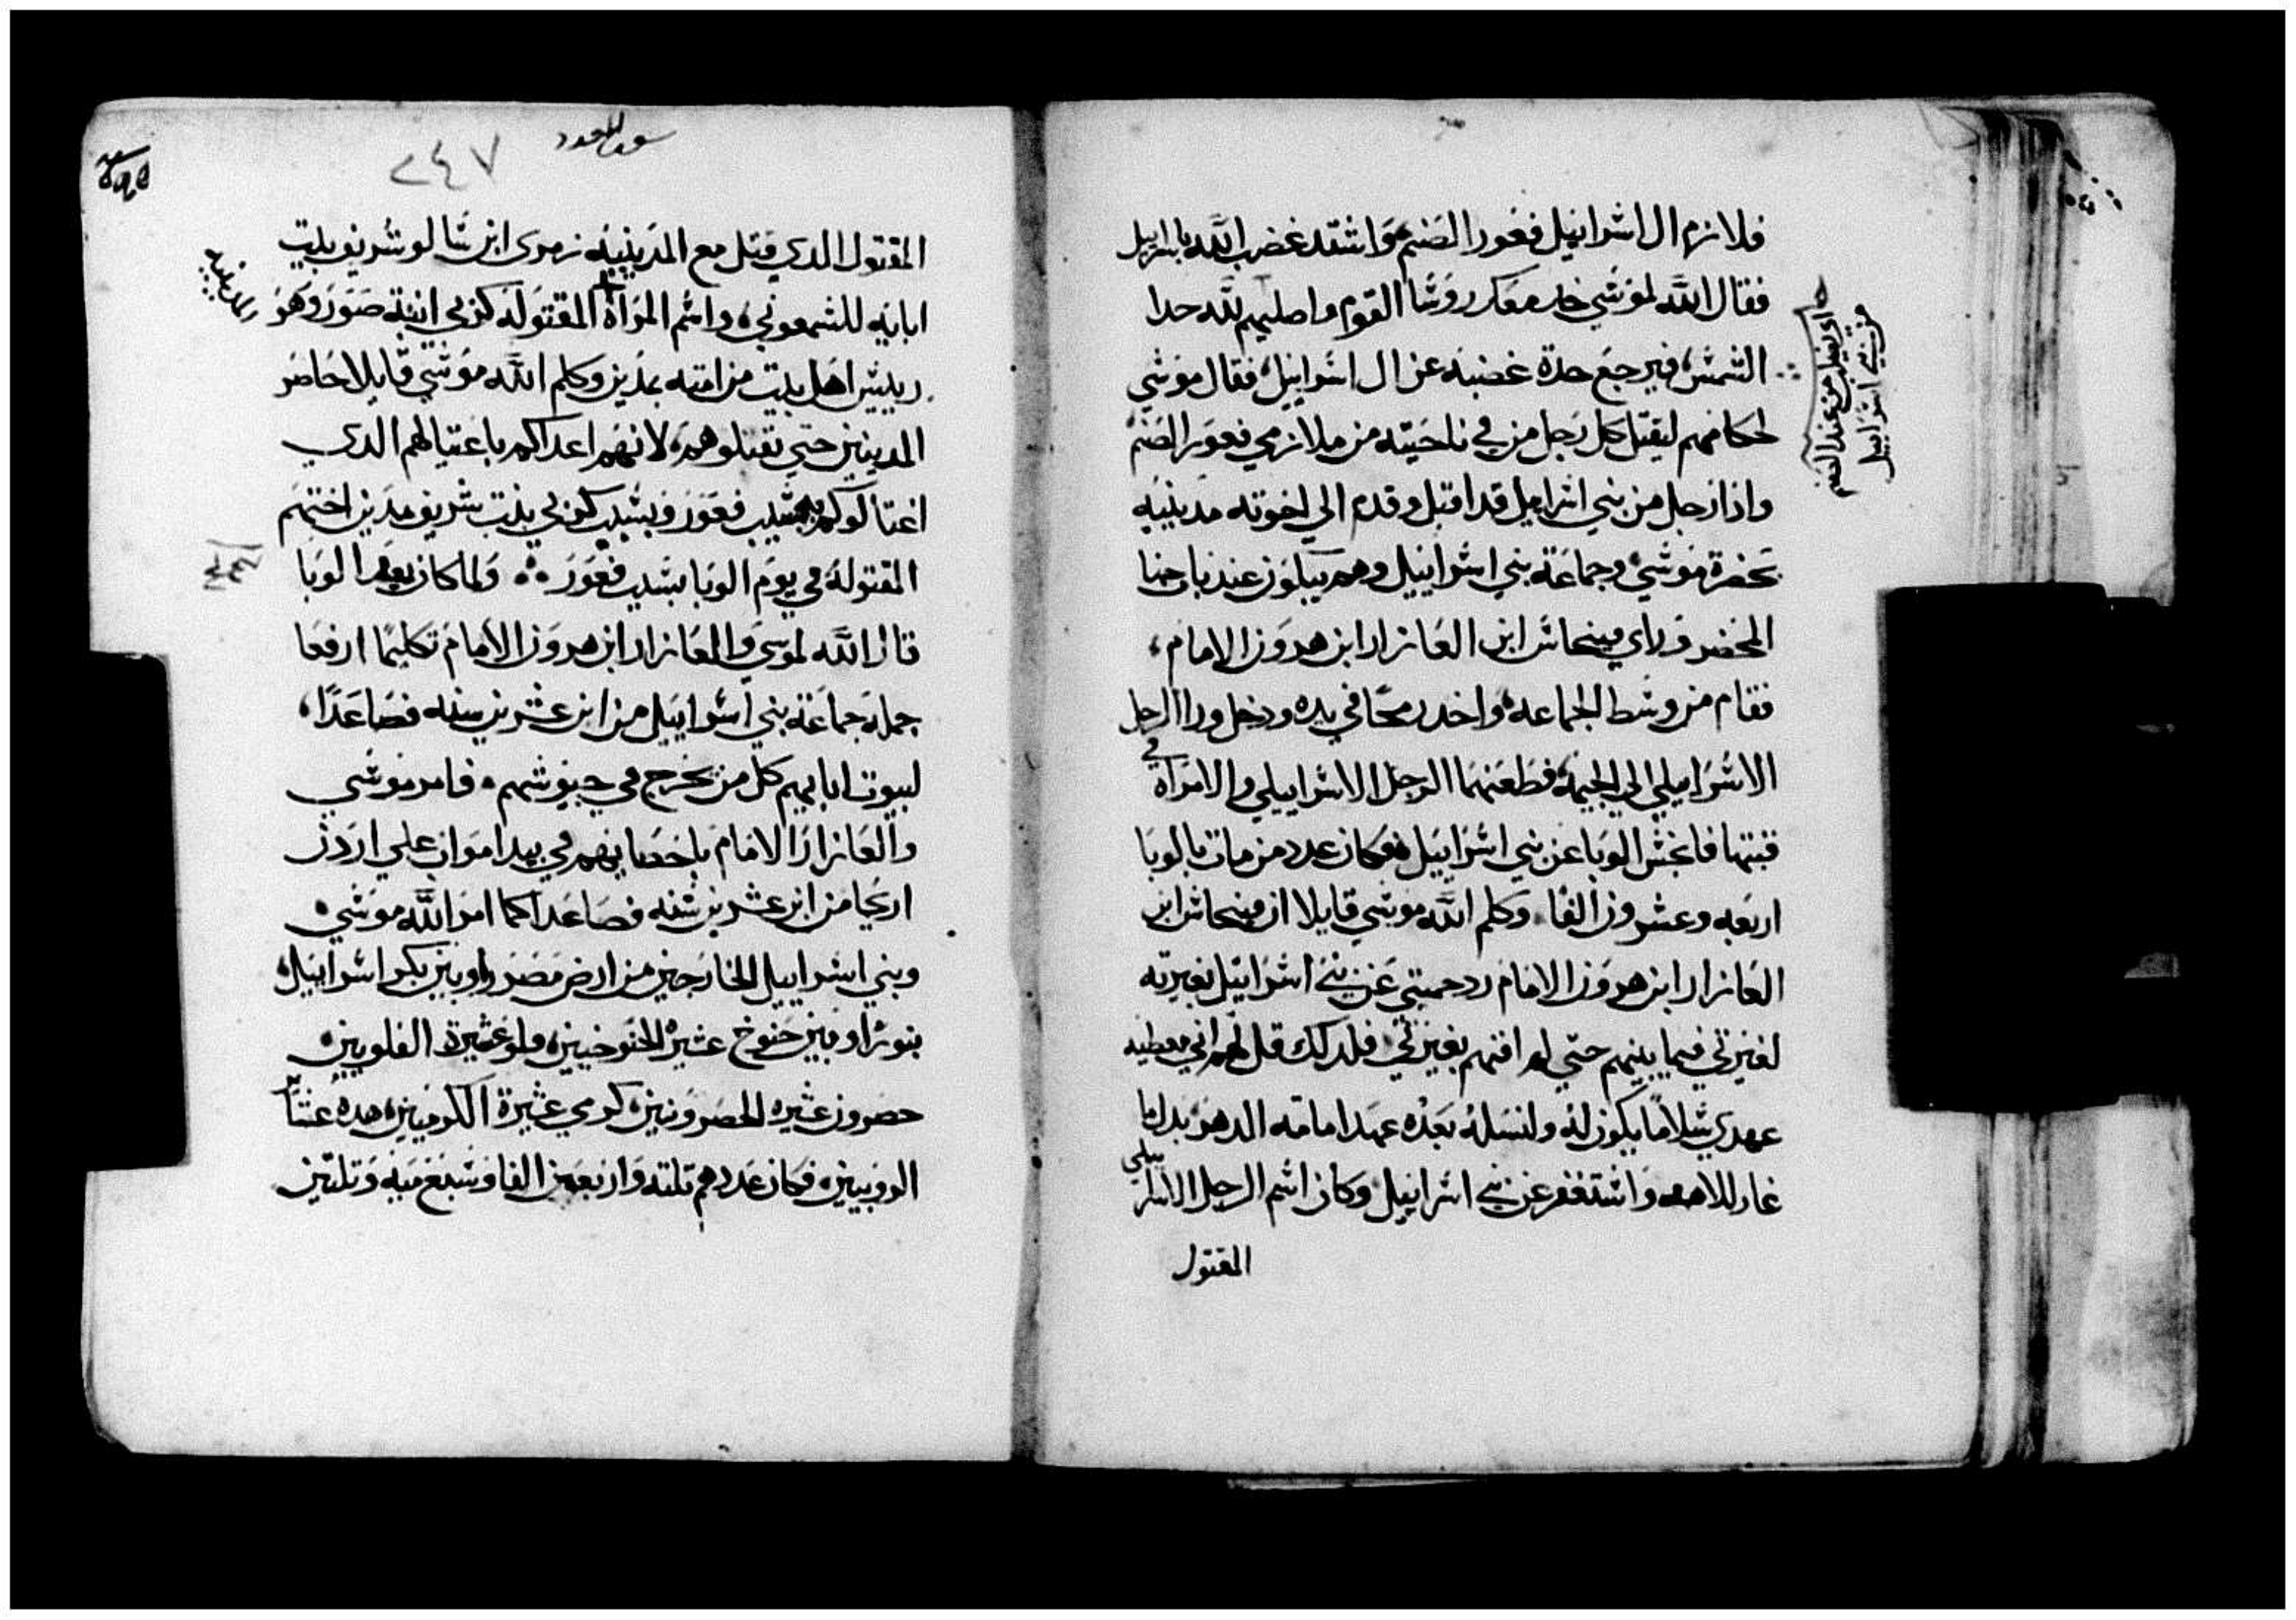 فلا نزم ال اسرائيل فغور الصنم واشتد غضب الله باسراييل
فقال الله لموسي خد معك روسا القوم واصلبهم لله حدا
الشمس، فيرجع حدة غضبه عن ال اسراييل، فقال موسي
لحكامهم ليقتل كل رجل من في ناحيته من ملازمي فعور الصنم
واذا رجل من بني اسراييل قد اقبل وقدم الي اخوته مدينيه
بحضرة موسي وجماعة بني اسراييل وهم يبكون عند باب خبا
المحضر وراي فينحاس ابن العازار ابن هرون الامام،
فقام من وسط الجماعه واخد رمحا في يده ودخل ورا الرجل
الاسراييلي الي الخيمة، فطعنهما الرجل الاسراييلي والامراه في
قبتها فانحبس الوبا عن بني اسراييل، فكان عدد من مات بالوبا
اربعه وعشرون الفا. وكلم الله موسي قايلا ان فينحاس ابن
العازار ابن هرون الامام رد حميتي عن بني اسراييل بغيرته
لغيرتي فيما بينهم حتي لم افنهم بغيرتي، فلدلك قل لهم اني معطيه
عهدي سلاما يكون له ولنسله بعده عهد امامة الدهر بدل ما
غار للاهه واستغفر عن بني اسراييل، وكان اسم الرجل الاسراييلي
المقتول
اي يقتل من عبد الصنم
من بني اسراييل
سفر العدد
٢٤٧
المقتول الدي قتل مع المدينيه زمري ابن سالو شريف بيت
ابايه للشمعوني، واسم المراة المقتوله كزبي ابنة صور وهو
المدينيه
رييس اهل بيت من امته بمدين وكلم الله موسي قايلا حاصر
المدينين حتي تقتلوهم، لانهم اعداكم باغتيالهم الدي
اغتالوكم بسبب فعور وبسبب كزبي بنت شريف مدين اختهم
المقتوله في يوم الوبا بسبب فعور ولما كان بعد الوبا
قال الله لموسي والعازار ابن هرون الامام تكليما ارفعا
جملة جماعة بني اسراييل من ابن عشرين سنه فصاعدا،
لبيوت ابايهم كل من يخرج في جيوشهم، فامر موسي
والعازار الامام باحصايهم في بيدا مواب علي اردن
اريحا من ابن عشرين سنه فصاعدا كما امر الله موسي
وبني اسراييل الخارجين من ارض مصر راوبين بكر اسراييل
بنو راوبين حنوخ عشيرة الحنوخيين، فلو عشيرة الفلويين
حصرون عشيره الحصرونين، كرمي عشيرة الكرميين، هده عشاير
الروبيين فكان عددهم تلته واربعين الفا وسبع ميه وتلتين